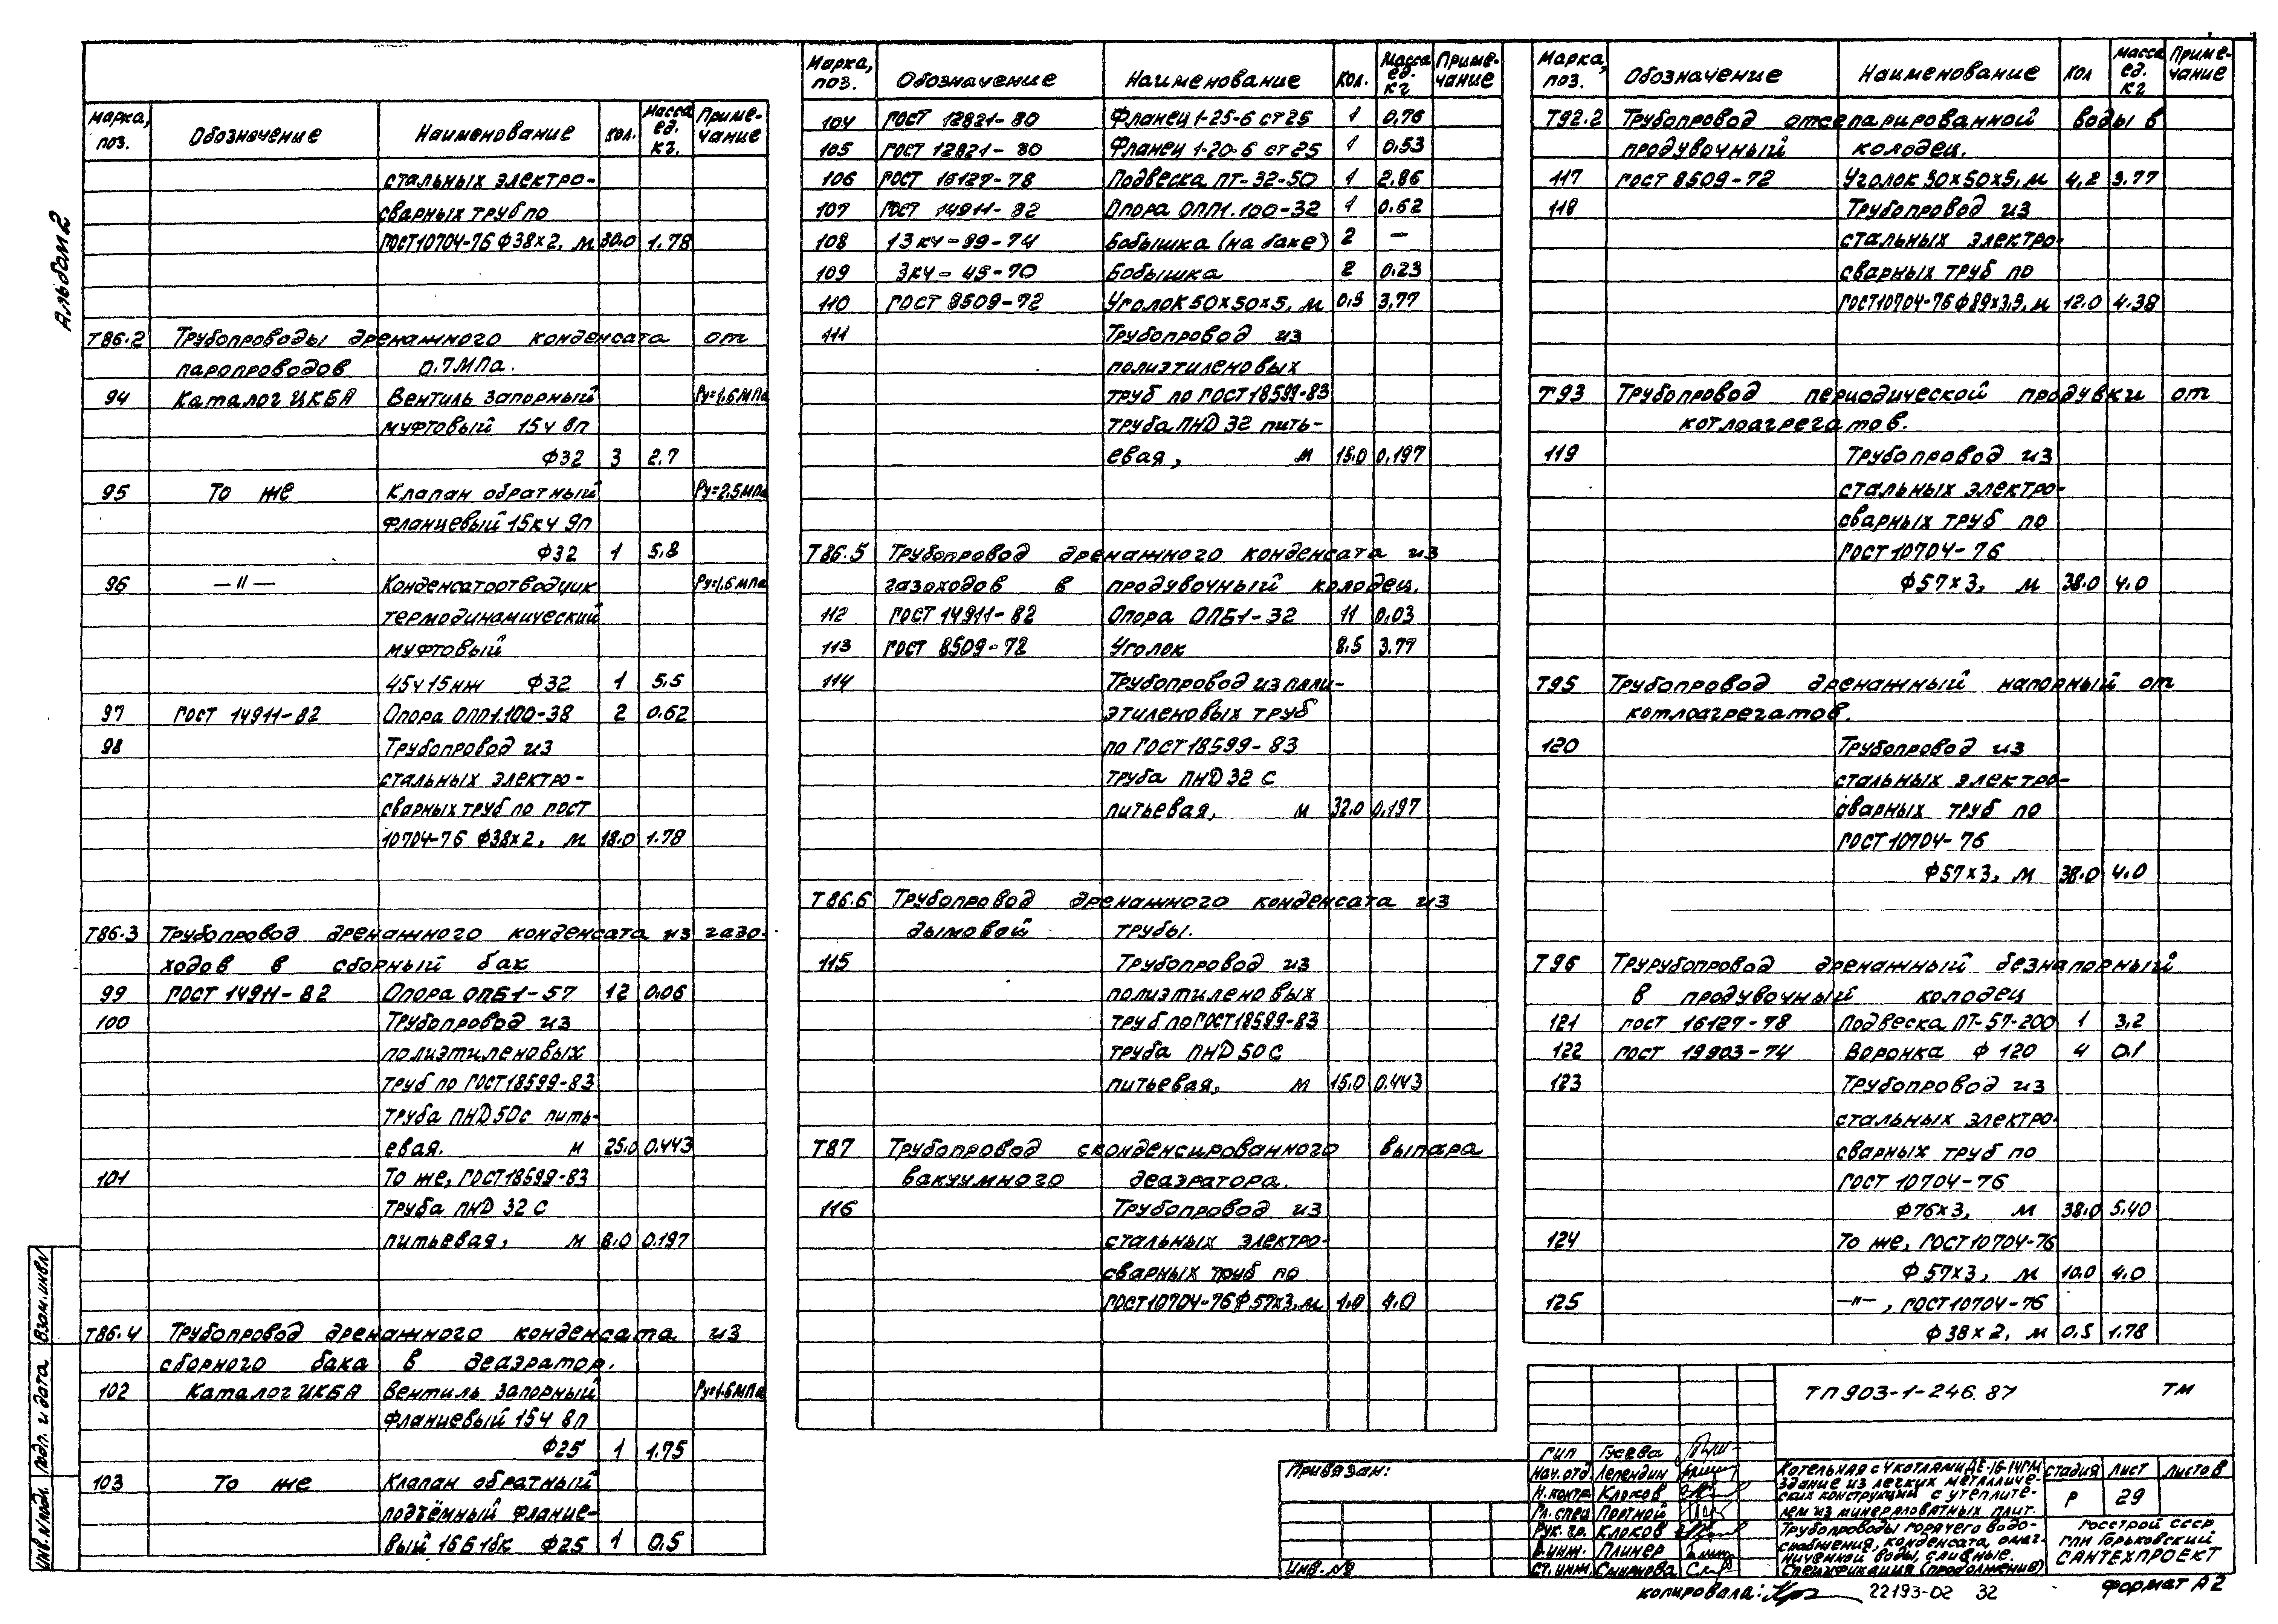 Альбом 2
Марка, поз. Обозначение Наименование Кол. Масса ед. кг. Приме-чание
стальных электро-
сварных труб по
ГОСТ 10704-76 ф38х2, м 30.0 1.78
Т86.2 Трубопроводы дренажного конденсата от
паропроводов 0.7МПа.
94 Каталог ЦКБА Вентиль запорный Ру=1.6МПа
муфтовый 15ч 8п
ф32 3 2.7
95 То же Клапан обратный Ру=2.5МПа
фланцевый 15кч 9п
ф32 1 5.8
96 —"— Конденсатоотводчик Ру=1.6МПа
термодинамический
муфтовый
45ч15нж ф32 1 5.5
97 ГОСТ 14911-82 Опора ОПП1.100-38 2 0.62
98 Трубопровод из
стальных электро-
сварных труб по ГОСТ
10704-76 ф38х2, м 18.0 1.78
Т86.3 Трубопровод дренажного конденсата из газо-
ходов в сборный бак
99 ГОСТ 14911-82 Опора ОПБ1-57 12 0.06
100 Трубопровод из
полиэтиленовых
труб по ГОСТ 18599-83
труба ПНД 50с пить-
евая. м 25.0 0.443
101 То же, ГОСТ 18599-83
Труба ПНД 32 С
питьевая, м 8.0 0.197
Т86.4 Трубопровод дренажного конденсата из
сборного бака в деаэратор.
102 Каталог ЦКБА Вентиль запорный Ру=1.6МПа
фланцевый 15ч 8п
ф25 1 1.75
103 То же Клапан обратный
подъёмный фланце-
вый 16Б1бк ф25 1 0.5
Марка, поз. Обозначение Наименование Кол. Масса ед. кг Приме-чание
104 ГОСТ 12821-80 Фланец 1-25-6 ст25 1 0.76
105 ГОСТ 12821-80 Фланец 1-20-6 ст25 1 0.53
106 ГОСТ 16127-78 Подвеска ПТ-32-50 1 2.86
107 ГОСТ 14911-82 Опора ОПП1.100-32 1 0.62
108 13кч-99-74 Бобышка (на баке) 2 —
109 3кч-45-70 Бобышка 2 0.23
110 ГОСТ 8509-72 Уголок 50х50х5, м 0.5 3.77
111 Трубопровод из
полиэтиленовых
труб по ГОСТ 18599-83
труба ПНД 32 пить-
евая, м 15.0 0.197
Т86.5 Трубопровод дренажного конденсата из
газоходов в продувочный колодец.
112 ГОСТ 14911-82 Опора ОПБ1-32 11 0.03
113 ГОСТ 8509-72 Уголок 8.5 3.77
114 Трубопровод из поли-
этиленовых труб
по ГОСТ 18599-83
труба ПНД 32 С
питьевая, м 32.0 0.197
Т86.6 Трубопровод дренажного конденсата из
дымовой трубы.
115 Трубопровод из
полиэтиленовых
труб по ГОСТ 18599-83
труба ПНД 50 С
питьевая, м 15.0 0.443
Т87 Трубопровод сконденсированного выпара
вакуумного деаэратора.
116 Трубопровод из
стальных электро-
сварных труб по
ГОСТ 10704-76 ф57х3, м 1.0 4.0
Марка, поз. Обозначение Наименование Кол Масса ед. кг Приме-чание
Т92.2 Трубопровод отсепарированной воды в
продувочный колодец.
117 ГОСТ 8509-72 Уголок 50х50х5, м 4,2 3.77
118 Трубопровод из
стальных электро-
сварных труб по
ГОСТ 10704-76 ф89х3,5, м 12.0 4.38
Т93 Трубопровод периодической продувки от
котлоагрегатов.
119 Трубопровод из
стальных электро-
сварных труб по
ГОСТ 10704-76
ф57х3, м 38.0 4.0
Т95 Трубопровод дренажный напорный от
котлоагрегатов.
120 Трубопровод из
стальных электро-
сварных труб по
ГОСТ 10704-76
ф57х3, м 38.0 4.0
Т96 Трурубопровод дренажный безнапорный
в продувочный колодец
121 ГОСТ 16127-78 Подвеска ПТ-57-200 1 3,2
122 ГОСТ 19903-74 Воронка ф 120 4 0.1
123 Трубопровод из
стальных электро-
сварных труб по
ГОСТ 10704-76
ф76х3, м 38.0 5.40
124 То же, ГОСТ 10704-76
ф57х3, м 10.0 4.0
125 —"—, ГОСТ 10704-76
ф38х2, м 0.5 1.78
ТП 903-1-246.87 ТМ
Гип Гусева
Нач.отд Лепендин
Н.контр. Клоков
Гл.спец Портной
Рук.гр. Клоков
В.инж. Плинер
Ст.инж. Смирнова
Котельная с 4 котлами ДЕ-16-14ГМ
здание из легких металличе-
ских конструкций с утеплите-
лем из минераловатных плит.
Стадия Лист Листов
Р 29
Трубопроводы горячего водо-
снабжения, конденсата, омаг-
ниченной воды, сливные.
Спецификация (продолжение)
Госстрой СССР
ГПИ Горьковский
САНТЕХПРОЕКТ
Привязан:
Инв. №
Инв.№подл. Подп. и дата Взам.инв№
Копировала: 22193-02 32 Формат А2